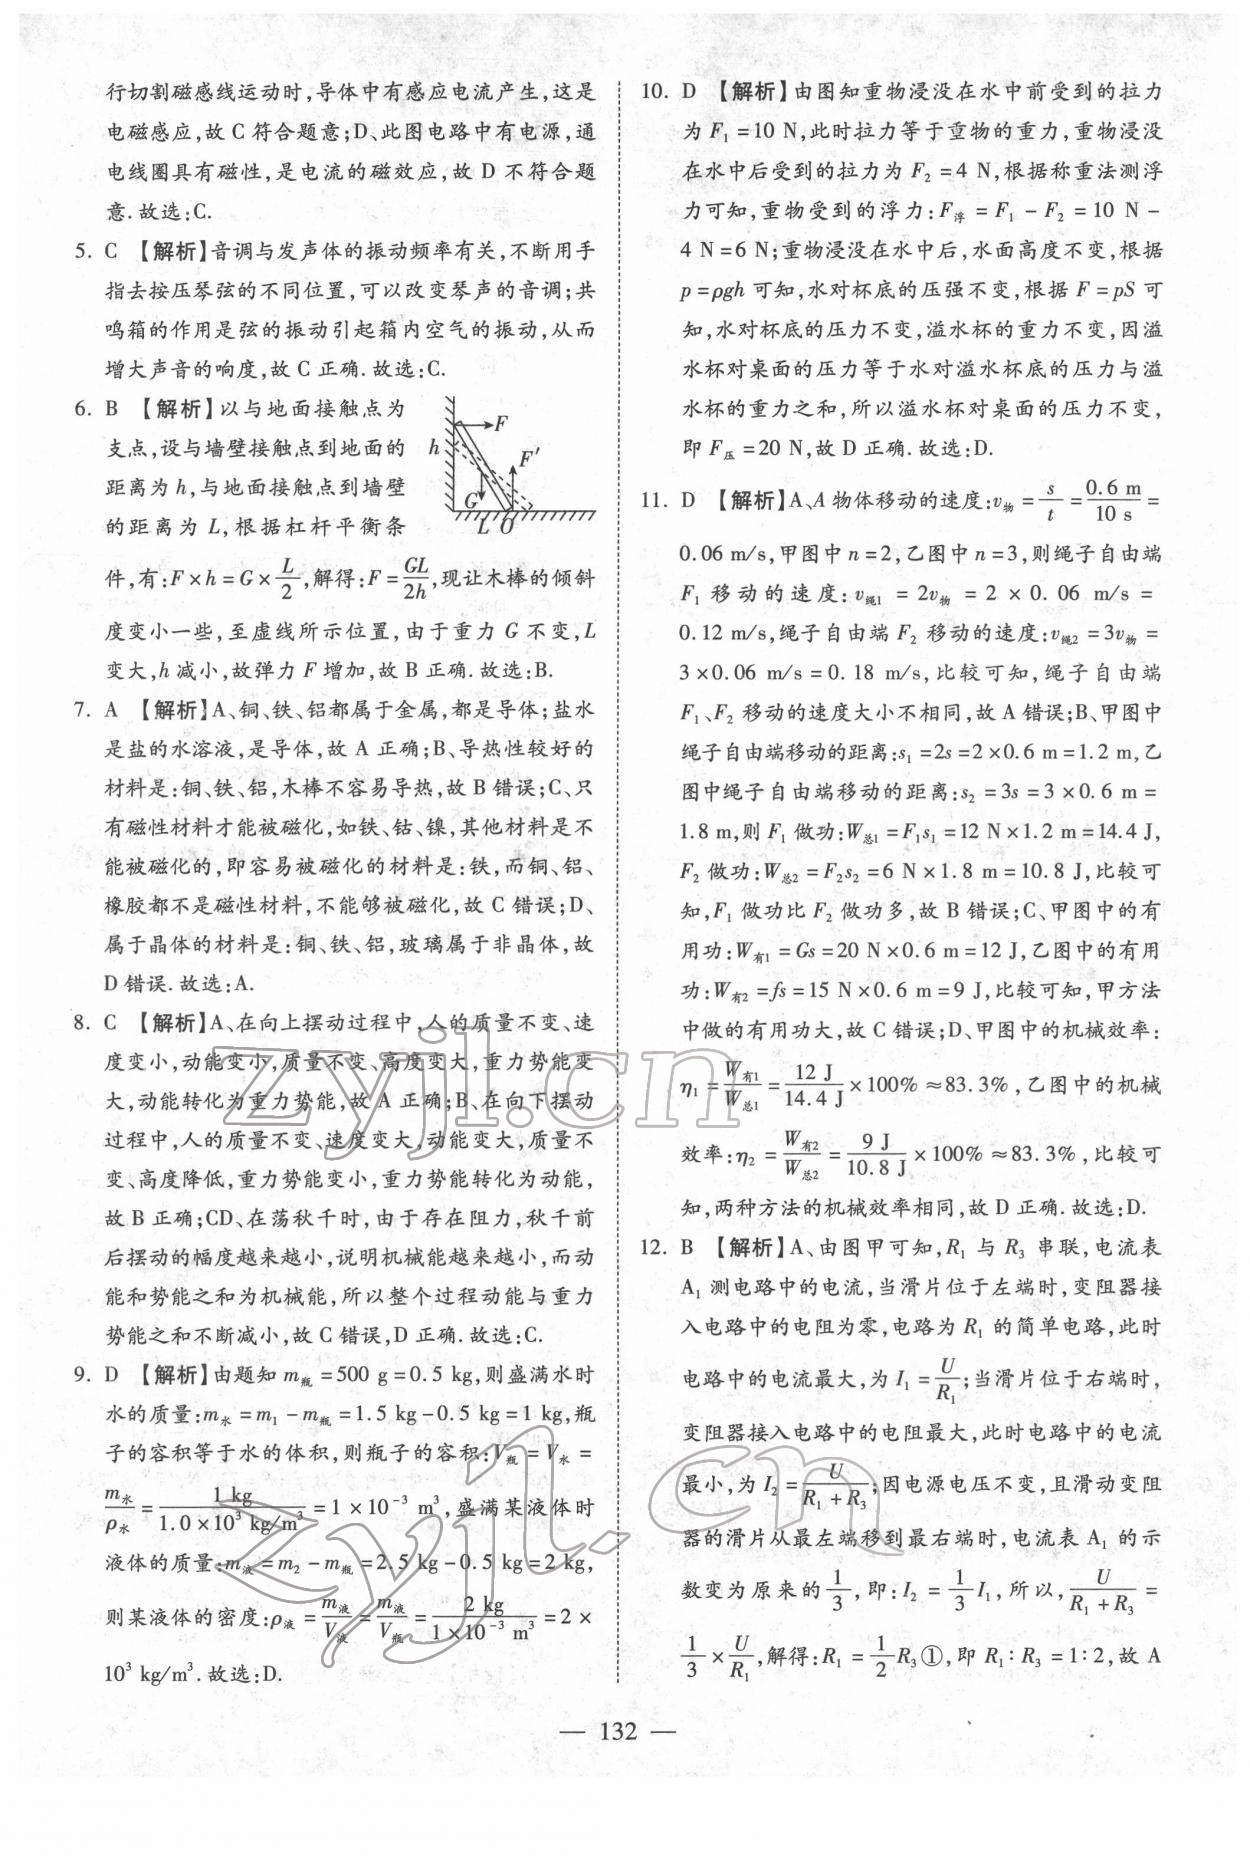 行切割磁感线运动时,导体中有感应电流产生,这是
电磁感应,故 C 符合题意;D、此图电路中有电源,通
电线圈具有磁性,是电流的磁效应,故 D 不符合题
意.故选:C.
5. C 【解析】音调与发声体的振动频率有关,不断用手
指去按压琴弦的不同位置,可以改变琴声的音调;共
鸣箱的作用是弦的振动引起箱内空气的振动,从而
增大声音的响度,故 C 正确.故选:C.
6. B 【解析】以与地面接触点为
支点,设与墙壁接触点到地面的
距离为 h,与地面接触点到墙壁
的距离为 L,根据杠杆平衡条
h F F′ G L O
件,有:F×h=G×L/2,解得:F=GL/2h,现让木棒的倾斜
度变小一些,至虚线所示位置,由于重力 G 不变,L
变大,h 减小,故弹力 F 增加,故 B 正确.故选:B.
7. A 【解析】A、铜、铁、铝都属于金属,都是导体;盐水
是盐的水溶液,是导体,故 A 正确;B、导热性较好的
材料是:铜、铁、铝,木棒不容易导热,故 B 错误;C、只
有磁性材料才能被磁化,如铁、钴、镍,其他材料是不
能被磁化的,即容易被磁化的材料是:铁,而铜、铝、
橡胶都不是磁性材料,不能够被磁化,故 C 错误;D、
属于晶体的材料是:铜、铁、铝,玻璃属于非晶体,故
D 错误.故选:A.
8. C 【解析】A、在向上摆动过程中,人的质量不变、速
度变小,动能变小,质量不变、高度变大,重力势能变
大,动能转化为重力势能,故 A 正确;B、在向下摆动
过程中,人的质量不变、速度变大,动能变大,质量不
变、高度降低,重力势能变小,重力势能转化为动能,
故 B 正确;CD、在荡秋千时,由于存在阻力,秋千前
后摆动的幅度越来越小,说明机械能越来越小,而动
能和势能之和为机械能,所以整个过程动能与重力
势能之和不断减小,故 C 错误,D 正确.故选:C.
9. D 【解析】由题知 m瓶=500 g=0.5 kg,则盛满水时
水的质量:m水=m₁-m瓶=1.5 kg-0.5 kg=1 kg,瓶
子的容积等于水的体积,则瓶子的容积:V瓶=V水=
m水/ρ水=1 kg/(1.0×10³ kg/m³)=1×10⁻³ m³,盛满某液体时
液体的质量:m液=m₂-m瓶=2.5 kg-0.5 kg=2 kg,
则某液体的密度:ρ液=m液/V液=m液/V瓶=2 kg/(1×10⁻³ m³)=2×
10³ kg/m³.故选:D.
10. D 【解析】由图知重物浸没在水中前受到的拉力
为 F₁=10 N,此时拉力等于重物的重力,重物浸没
在水中后受到的拉力为 F₂=4 N,根据称重法测浮
力可知,重物受到的浮力:F浮=F₁-F₂=10 N-
4 N=6 N;重物浸没在水中后,水面高度不变,根据
p=ρgh 可知,水对杯底的压强不变,根据 F=pS 可
知,水对杯底的压力不变,溢水杯的重力不变,因溢
水杯对桌面的压力等于水对溢水杯底的压力与溢
水杯的重力之和,所以溢水杯对桌面的压力不变,
即 F压=20 N,故 D 正确.故选:D.
11. D 【解析】A、A 物体移动的速度:v物=s/t=0.6 m/10 s=
0.06 m/s,甲图中 n=2,乙图中 n=3,则绳子自由端
F₁ 移动的速度:v绳1=2v物=2×0.06 m/s=
0.12 m/s,绳子自由端 F₂ 移动的速度:v绳2=3v物=
3×0.06 m/s=0.18 m/s,比较可知,绳子自由端
F₁、F₂ 移动的速度大小不相同,故 A 错误;B、甲图中
绳子自由端移动的距离:s₁=2s=2×0.6 m=1.2 m,乙
图中绳子自由端移动的距离:s₂=3s=3×0.6 m=
1.8 m,则 F₁ 做功:W总1=F₁s₁=12 N×1.2 m=14.4 J,
F₂ 做功:W总2=F₂s₂=6 N×1.8 m=10.8 J,比较可
知,F₁ 做功比 F₂ 做功多,故 B 错误;C、甲图中的有
用功:W有1=Gs=20 N×0.6 m=12 J,乙图中的有用
功:W有2=fs=15 N×0.6 m=9 J,比较可知,甲方法
中做的有用功大,故 C 错误;D、甲图中的机械效率:
η₁=W有1/W总1=12 J/14.4 J×100%≈83.3%,乙图中的机械
效率:η₂=W有2/W总2=9 J/10.8 J×100%≈83.3%,比较可
知,两种方法的机械效率相同,故 D 正确.故选:D.
12. B 【解析】A、由图甲可知,R₁ 与 R₃ 串联,电流表
A₁ 测电路中的电流,当滑片位于左端时,变阻器接
入电路中的电阻为零,电路为 R₁ 的简单电路,此时
电路中的电流最大,为 I₁=U/R₁;当滑片位于右端时,
变阻器接入电路中的电阻最大,此时电路中的电流
最小,为 I₂=U/(R₁+R₃);因电源电压不变,且滑动变阻
器的滑片从最左端移到最右端时,电流表 A₁ 的示
数变为原来的1/3,即:I₂=1/3 I₁,所以,U/(R₁+R₃)=
1/3×U/R₁,解得:R₁=1/2 R₃①,即 R₁∶R₃=1∶2,故 A
— 132 —
zyjl.cn
zyjl.cn